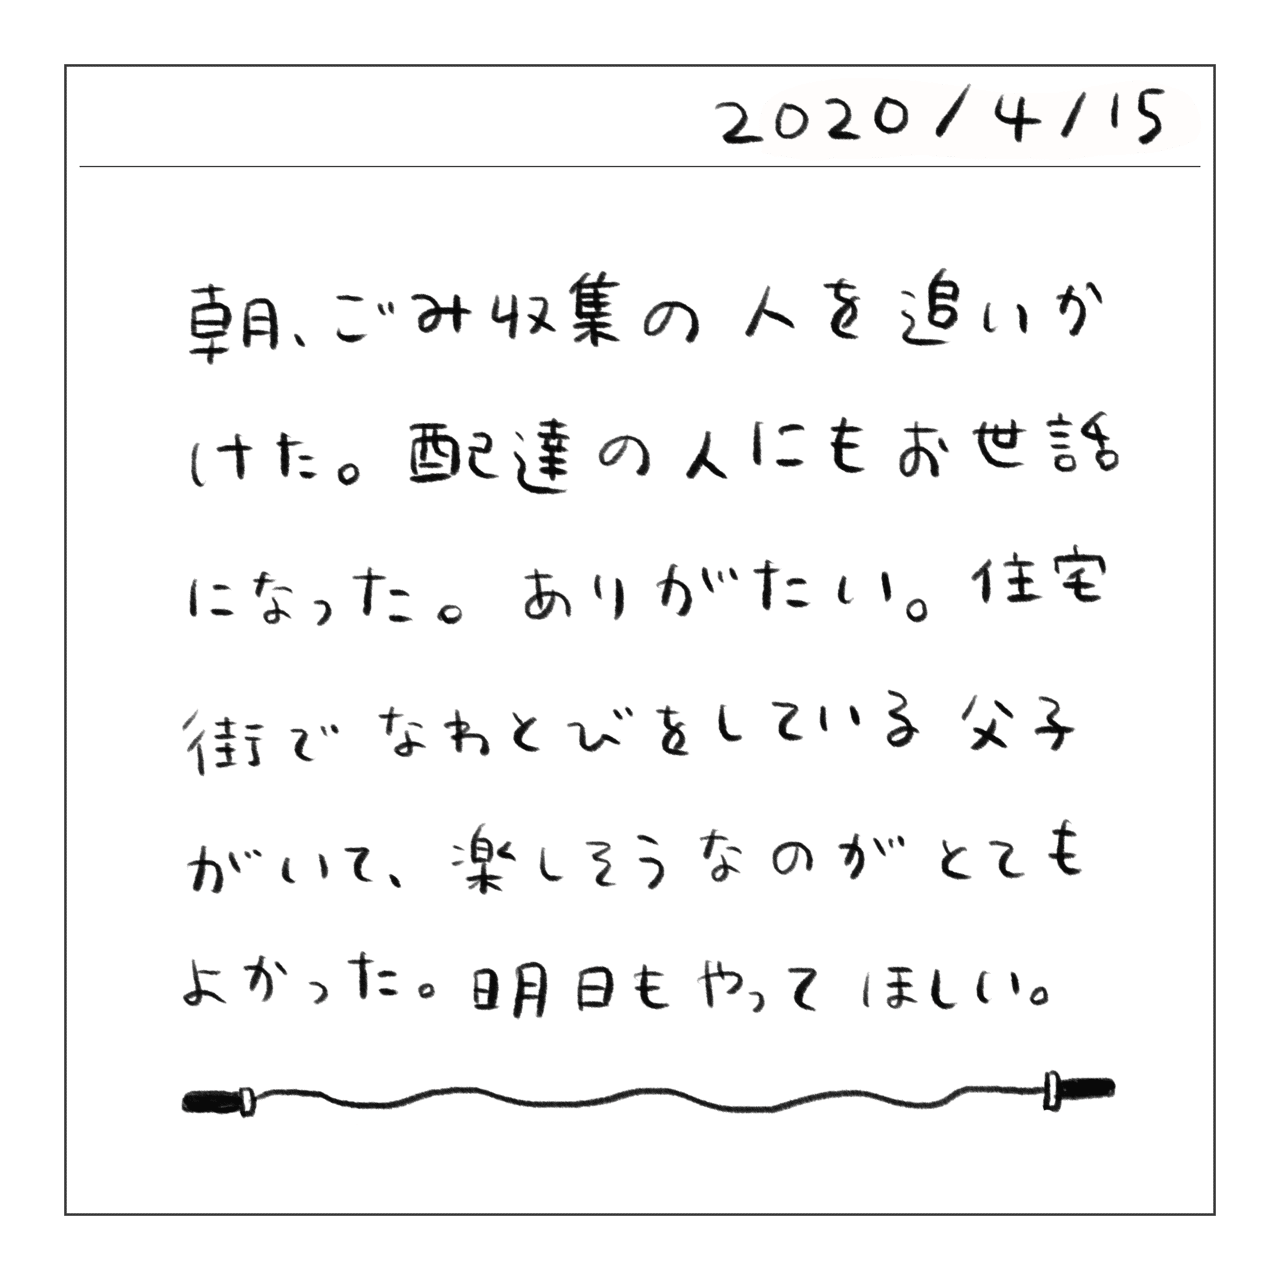 2020/4/15
朝、ごみ収集の人を追いか
けた。配達の人にもお世話
になった。ありがたい。住宅
街でなわとびをしている父子
がいて、楽しそうなのがとても
よかった。明日もやってほしい。